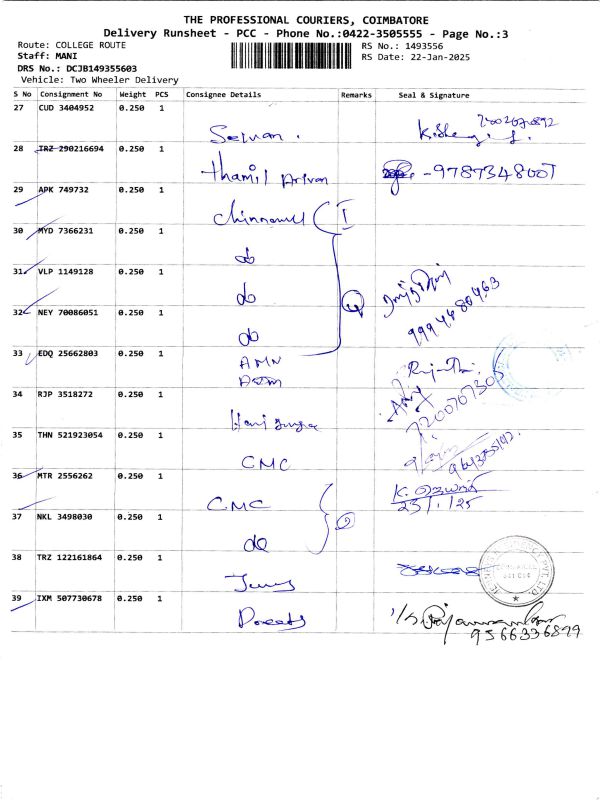 THE PROFESSIONAL COURIERS, COIMBATORE
Delivery Runsheet - PCC - Phone No.:0422-3505555 - Page No.:3
Route: COLLEGE ROUTE
RS No.: 1493556
Staff: MANI
RS Date: 22-Jan-2025
DRS No.: DCJB149355603
Vehicle: Two Wheeler Delivery
S No Consignment No Weight PCS Consignee Details Remarks Seal & Signature
27 CUD 3404952 0.250 1
Selvan.
28 TRZ 290216694 0.250 1
Thamil Arivan 9787348007
29 APK 749732 0.250 1
I
30 MYD 7366231 0.250 1
do
31 VLP 1149128 0.250 1
do 4 9994480463
32 NEY 70086051 0.250 1
do
33 EDQ 25662803 0.250 1
AMN
34 RJP 3518272 0.250 1
7200767305
35 THN 521923054 0.250 1
CMC
36 MTR 2556262 0.250 1
CMC
23/1/25
37 NKL 3498030 0.250 1
do 2
38 TRZ 122161864 0.250 1
39 IXM 507730678 0.250 1
9566336899